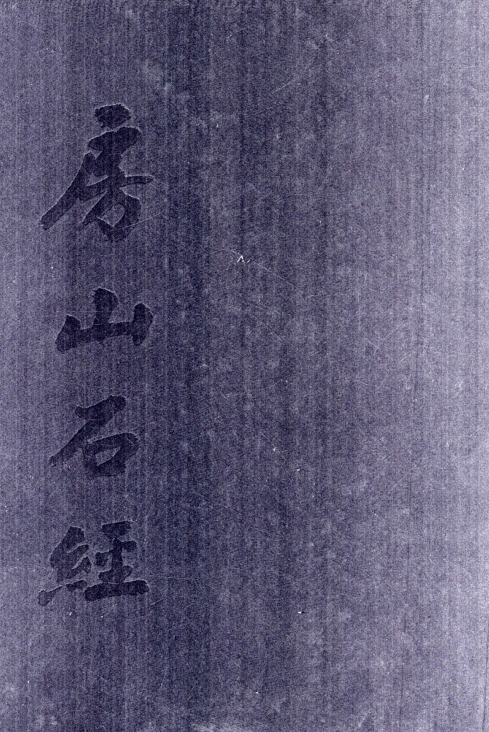 房山石經